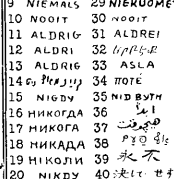 9 NIEMALS 29 NIEKUOMET
10 NOOIT 30 NOOIT
11 ALDRIG 31 ALDREI
12 ALDRI 32
13 ALDRIG 33 ASLA
14 34 ΠΟΤΕ
15 NIGDY 35 NID BYTH
16 НИКОГДА 36 ابداً
17 НИКОГА 37 هیچوقت
18 НИКАДА 38
19 НІКОЛИ 39 永不
20 NIKDY 40 決して